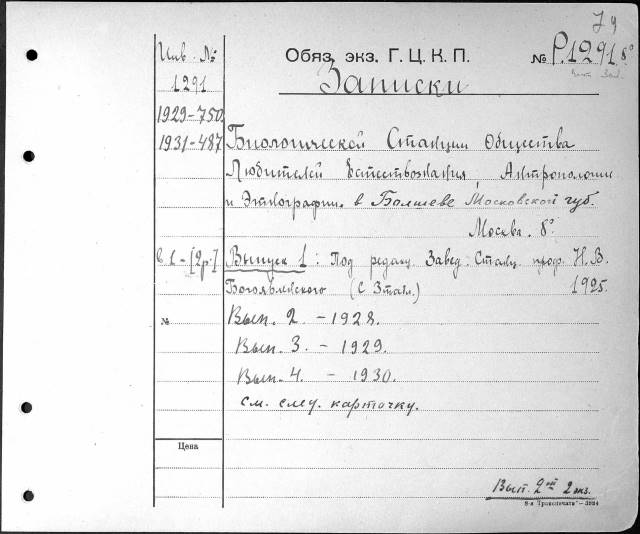 79
Инв. № Обяз. экз. Г. Ц. К. П. № Р.1291 8°
1291 Записки
1929-750.
1931-487 Биологической Станции Общества
Любителей Естествознания, Антропологии
и Этнографии в Болшеве Московской губ.
Москва. 8°
в 1-[2р:] Выпуск 1: Под редакц. Завед. Станц. проф. Н. В.
Богоявленского (с 3 табл.) 1925.
№ Вып. 2. - 1928.
Вып. 3. - 1929.
Вып. 4. - 1930.
см. след. карточку.
Цена
Вып. 2ой 2 экз.
8-я "Транспечать"—3934